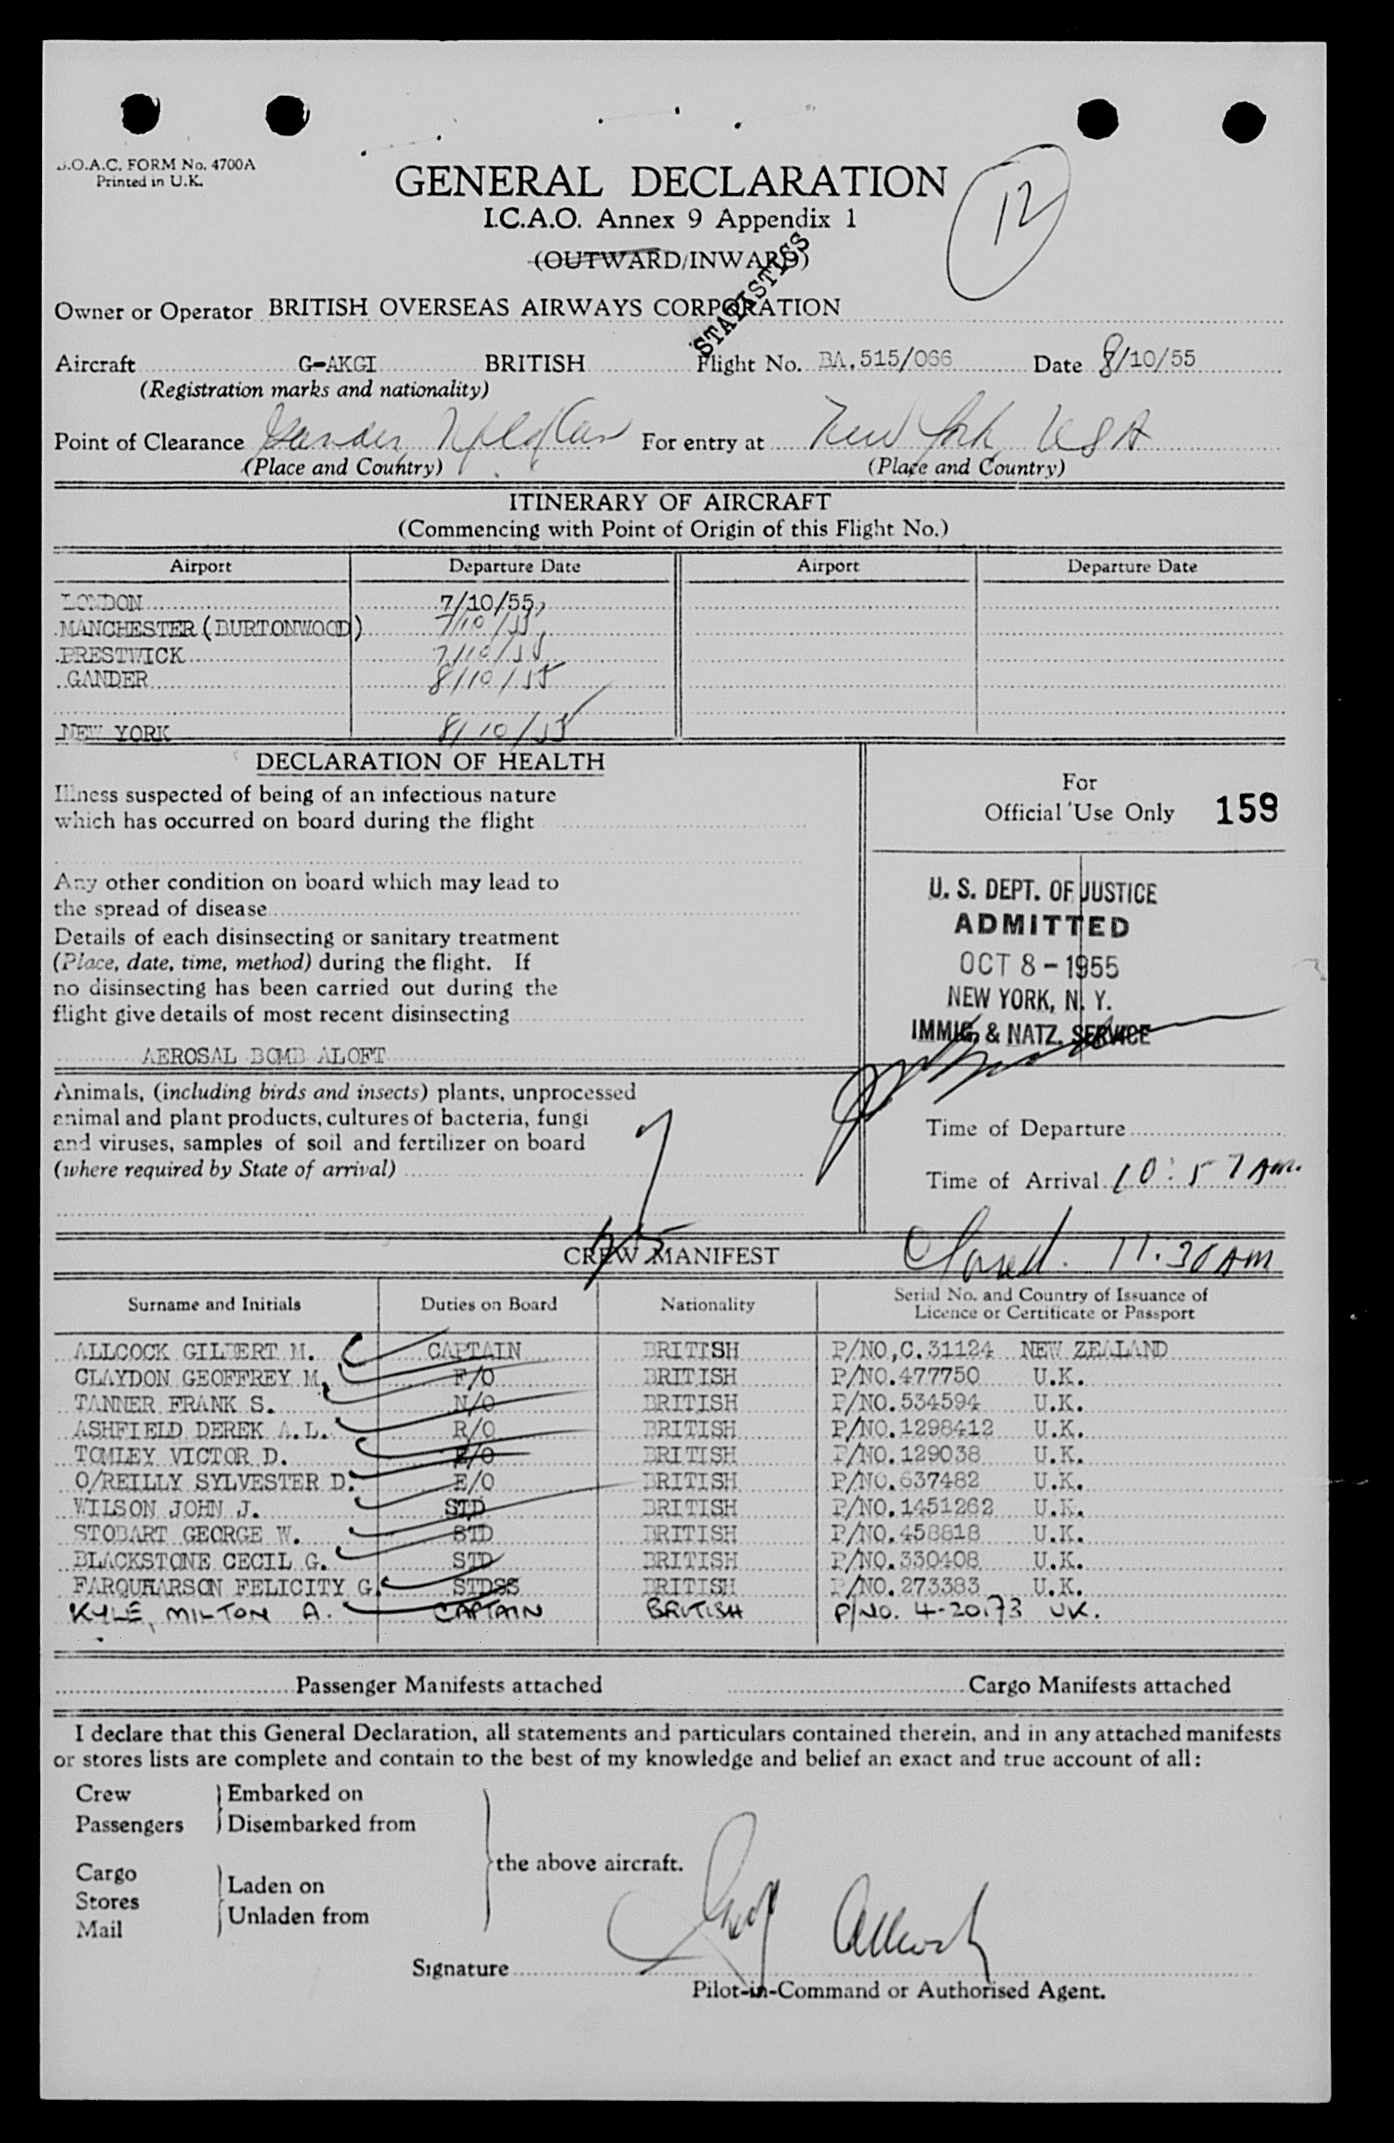 B.O.A.C. FORM No. 4700A
Printed in U.K.
GENERAL DECLARATION
I.C.A.O. Annex 9 Appendix 1
(OUTWARD/INWARD)
12
STATISTICS
Owner or Operator BRITISH OVERSEAS AIRWAYS CORPORATION
Aircraft G-AKGI BRITISH Flight No. BA.515/066 Date 8/10/55
(Registration marks and nationality)
Point of Clearance Gander, For entry at New York USA
(Place and Country) (Place and Country)
ITINERARY OF AIRCRAFT
(Commencing with Point of Origin of this Flight No.)
Airport Departure Date Airport Departure Date
LONDON 7/10/55
MANCHESTER (BURTONWOOD) 7/10/55
PRESTWICK 7/10/55
GANDER 8/10/55
NEW YORK 8/10/55
DECLARATION OF HEALTH
Illness suspected of being of an infectious nature
which has occurred on board during the flight
Any other condition on board which may lead to
the spread of disease
Details of each disinsecting or sanitary treatment
(Place, date, time, method) during the flight. If
no disinsecting has been carried out during the
flight give details of most recent disinsecting
AEROSAL BOMB ALOFT
For
Official Use Only 159
U. S. DEPT. OF JUSTICE
ADMITTED
OCT 8 - 1955
NEW YORK, N. Y.
IMMIG. & NATZ. SERVICE
Animals, (including birds and insects) plants, unprocessed
animal and plant products, cultures of bacteria, fungi
and viruses, samples of soil and fertilizer on board
(where required by State of arrival)
Time of Departure
Time of Arrival 10:57 AM.
CREW MANIFEST
Closed. 11.30 AM
Surname and Initials Duties on Board Nationality Serial No. and Country of Issuance of
Licence or Certificate or Passport
ALLCOCK GILBERT M. CAPTAIN BRITISH P/NO,C.31124 NEW ZEALAND
CLAYDON GEOFFREY M. F/O BRITISH P/NO.477750 U.K.
TANNER FRANK S. N/O BRITISH P/NO.534594 U.K.
ASHFIELD DEREK A.L. R/O BRITISH P/NO.1298412 U.K.
TOMLEY VICTOR D. E/O BRITISH P/NO.129038 U.K.
O/REILLY SYLVESTER D. E/O BRITISH P/NO.637482 U.K.
WILSON JOHN J. STD BRITISH P/NO.1451262 U.K.
STOBART GEORGE W. STD BRITISH P/NO.458818 U.K.
BLACKSTONE CECIL G. STD BRITISH P/NO.330408 U.K.
FARQUHARSON FELICITY G. STDSS BRITISH P/NO.273383 U.K.
KYLE, MILTON A. CAPTAIN BRITISH P/NO. 4-20173 UK.
Passenger Manifests attached Cargo Manifests attached
I declare that this General Declaration, all statements and particulars contained therein, and in any attached manifests
or stores lists are complete and contain to the best of my knowledge and belief an exact and true account of all:
Crew Embarked on
Passengers Disembarked from
the above aircraft.
Cargo
Stores Laden on
Mail Unladen from
Signature Allcock
Pilot-in-Command or Authorised Agent.